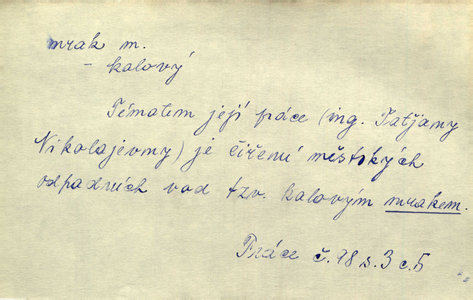 mrak m.
- kalový
Tématem její práce (ing. Tatjany
Nikolajevny) je čiření městských
odpadních vod tzv. kalovým mrakem.
Práce č. 98 s. 3 c. 5